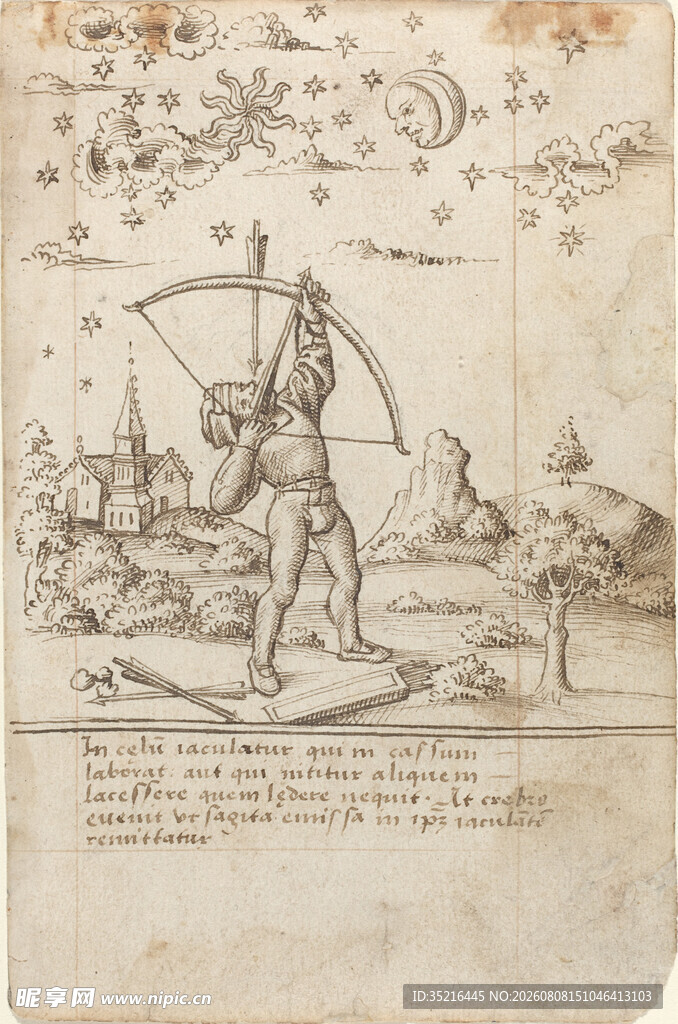 In cęlū iaculatur qui in cassum
laborat: aut qui nititur aliquem
lacessere quem lędere nequit. At crebro
evenit vt sagita emissa in ipꝫ iaculātē
remittatur
昵享网 www.nipic.cn
ID:35216445 NO:20260808151046413103